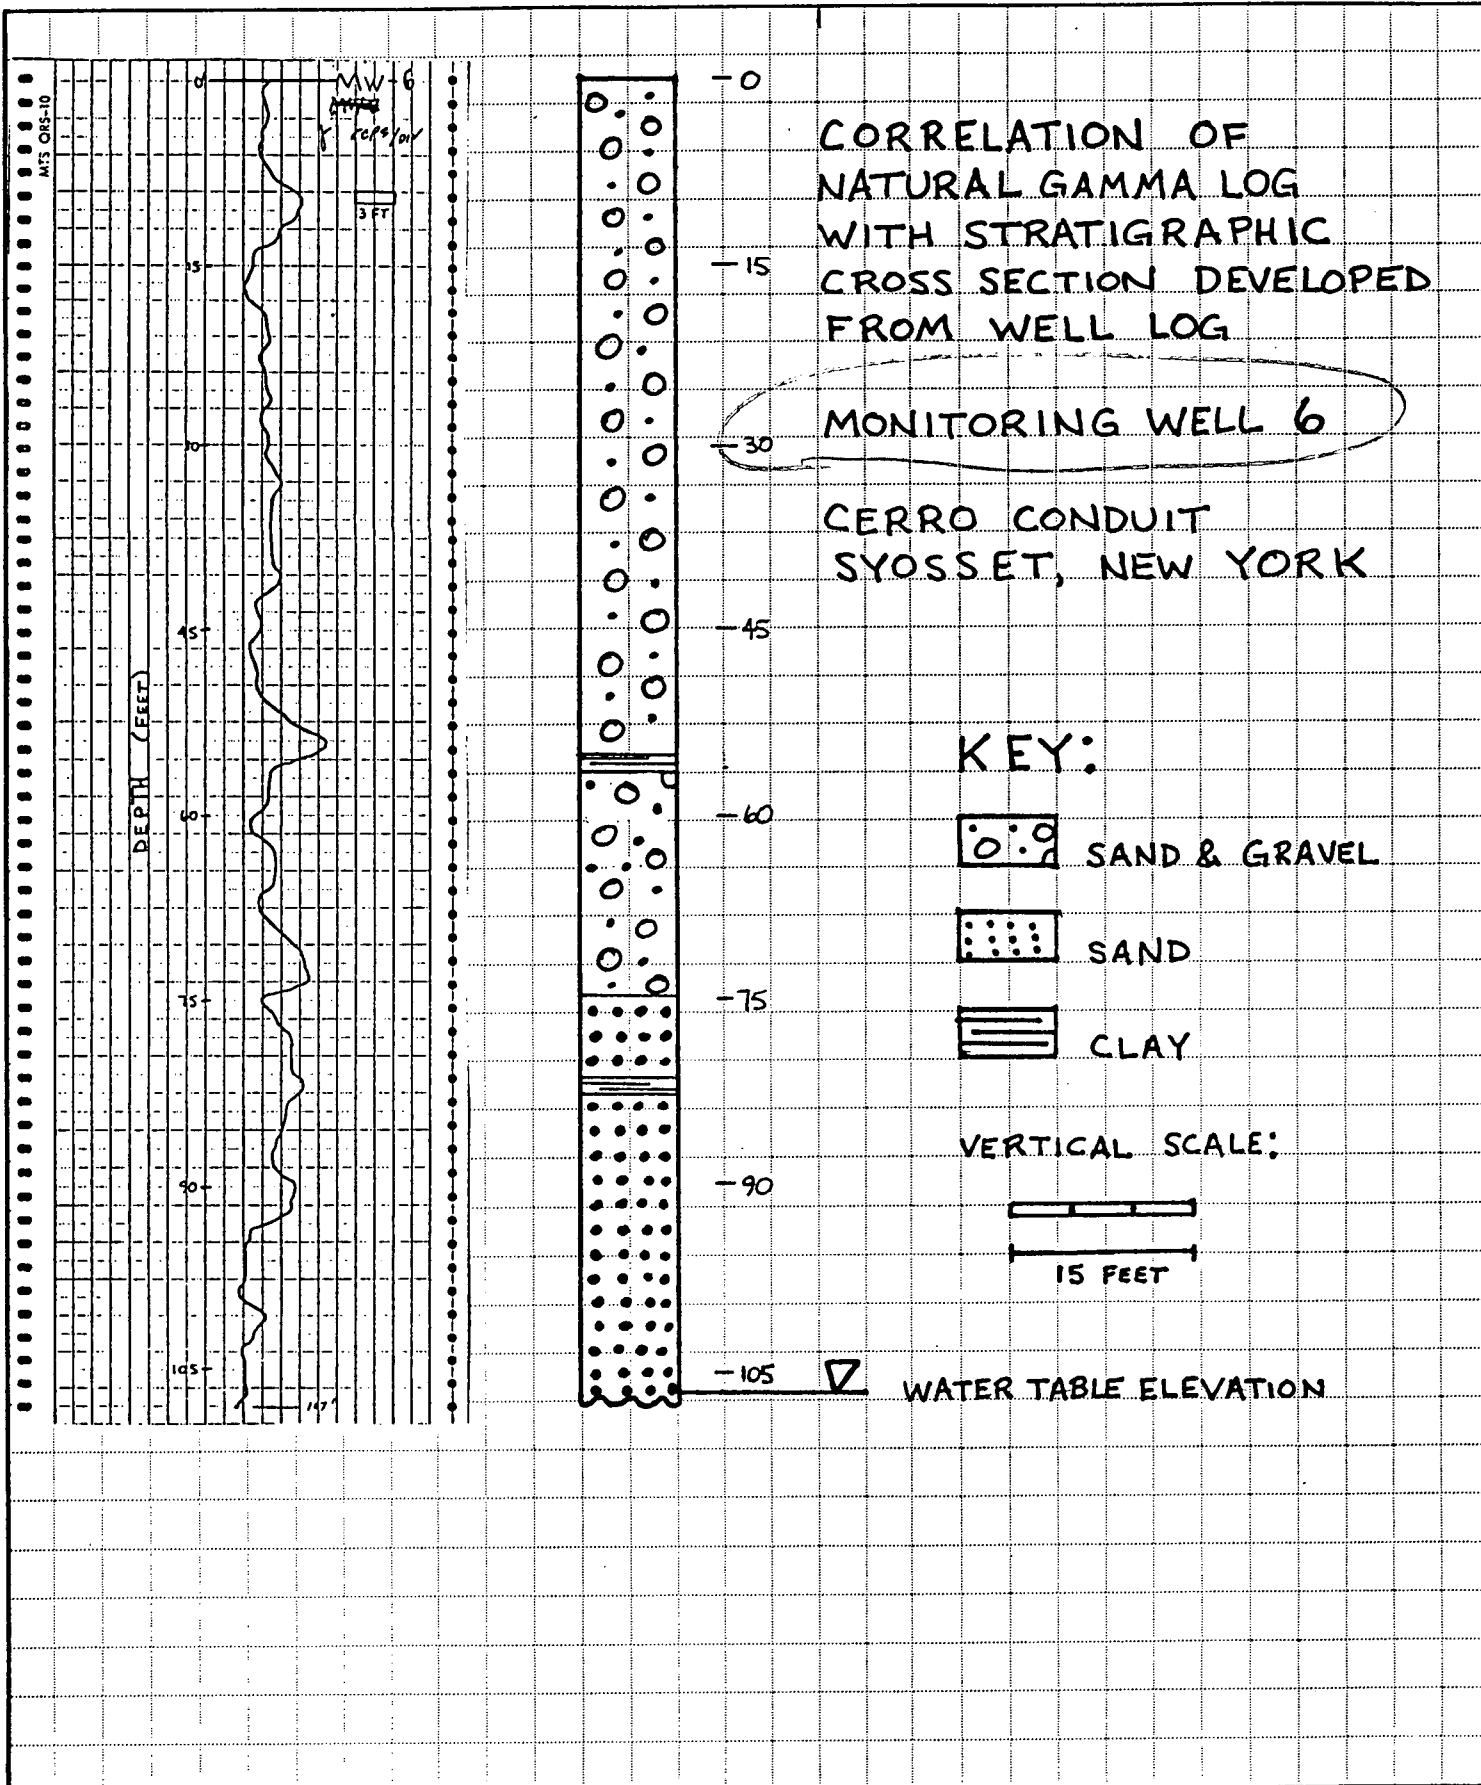 MTS QRS-10
0
MW-6
3 FT
15
30
45
60
75
90
105
107'
DEPTH (FEET)
-0
-15
-30
-45
-60
-75
-90
-105
CORRELATION OF
NATURAL GAMMA LOG
WITH STRATIGRAPHIC
CROSS SECTION DEVELOPED
FROM WELL LOG
MONITORING WELL 6
CERRO CONDUIT
SYOSSET, NEW YORK
KEY:
SAND & GRAVEL
SAND
CLAY
VERTICAL SCALE:
15 FEET
WATER TABLE ELEVATION